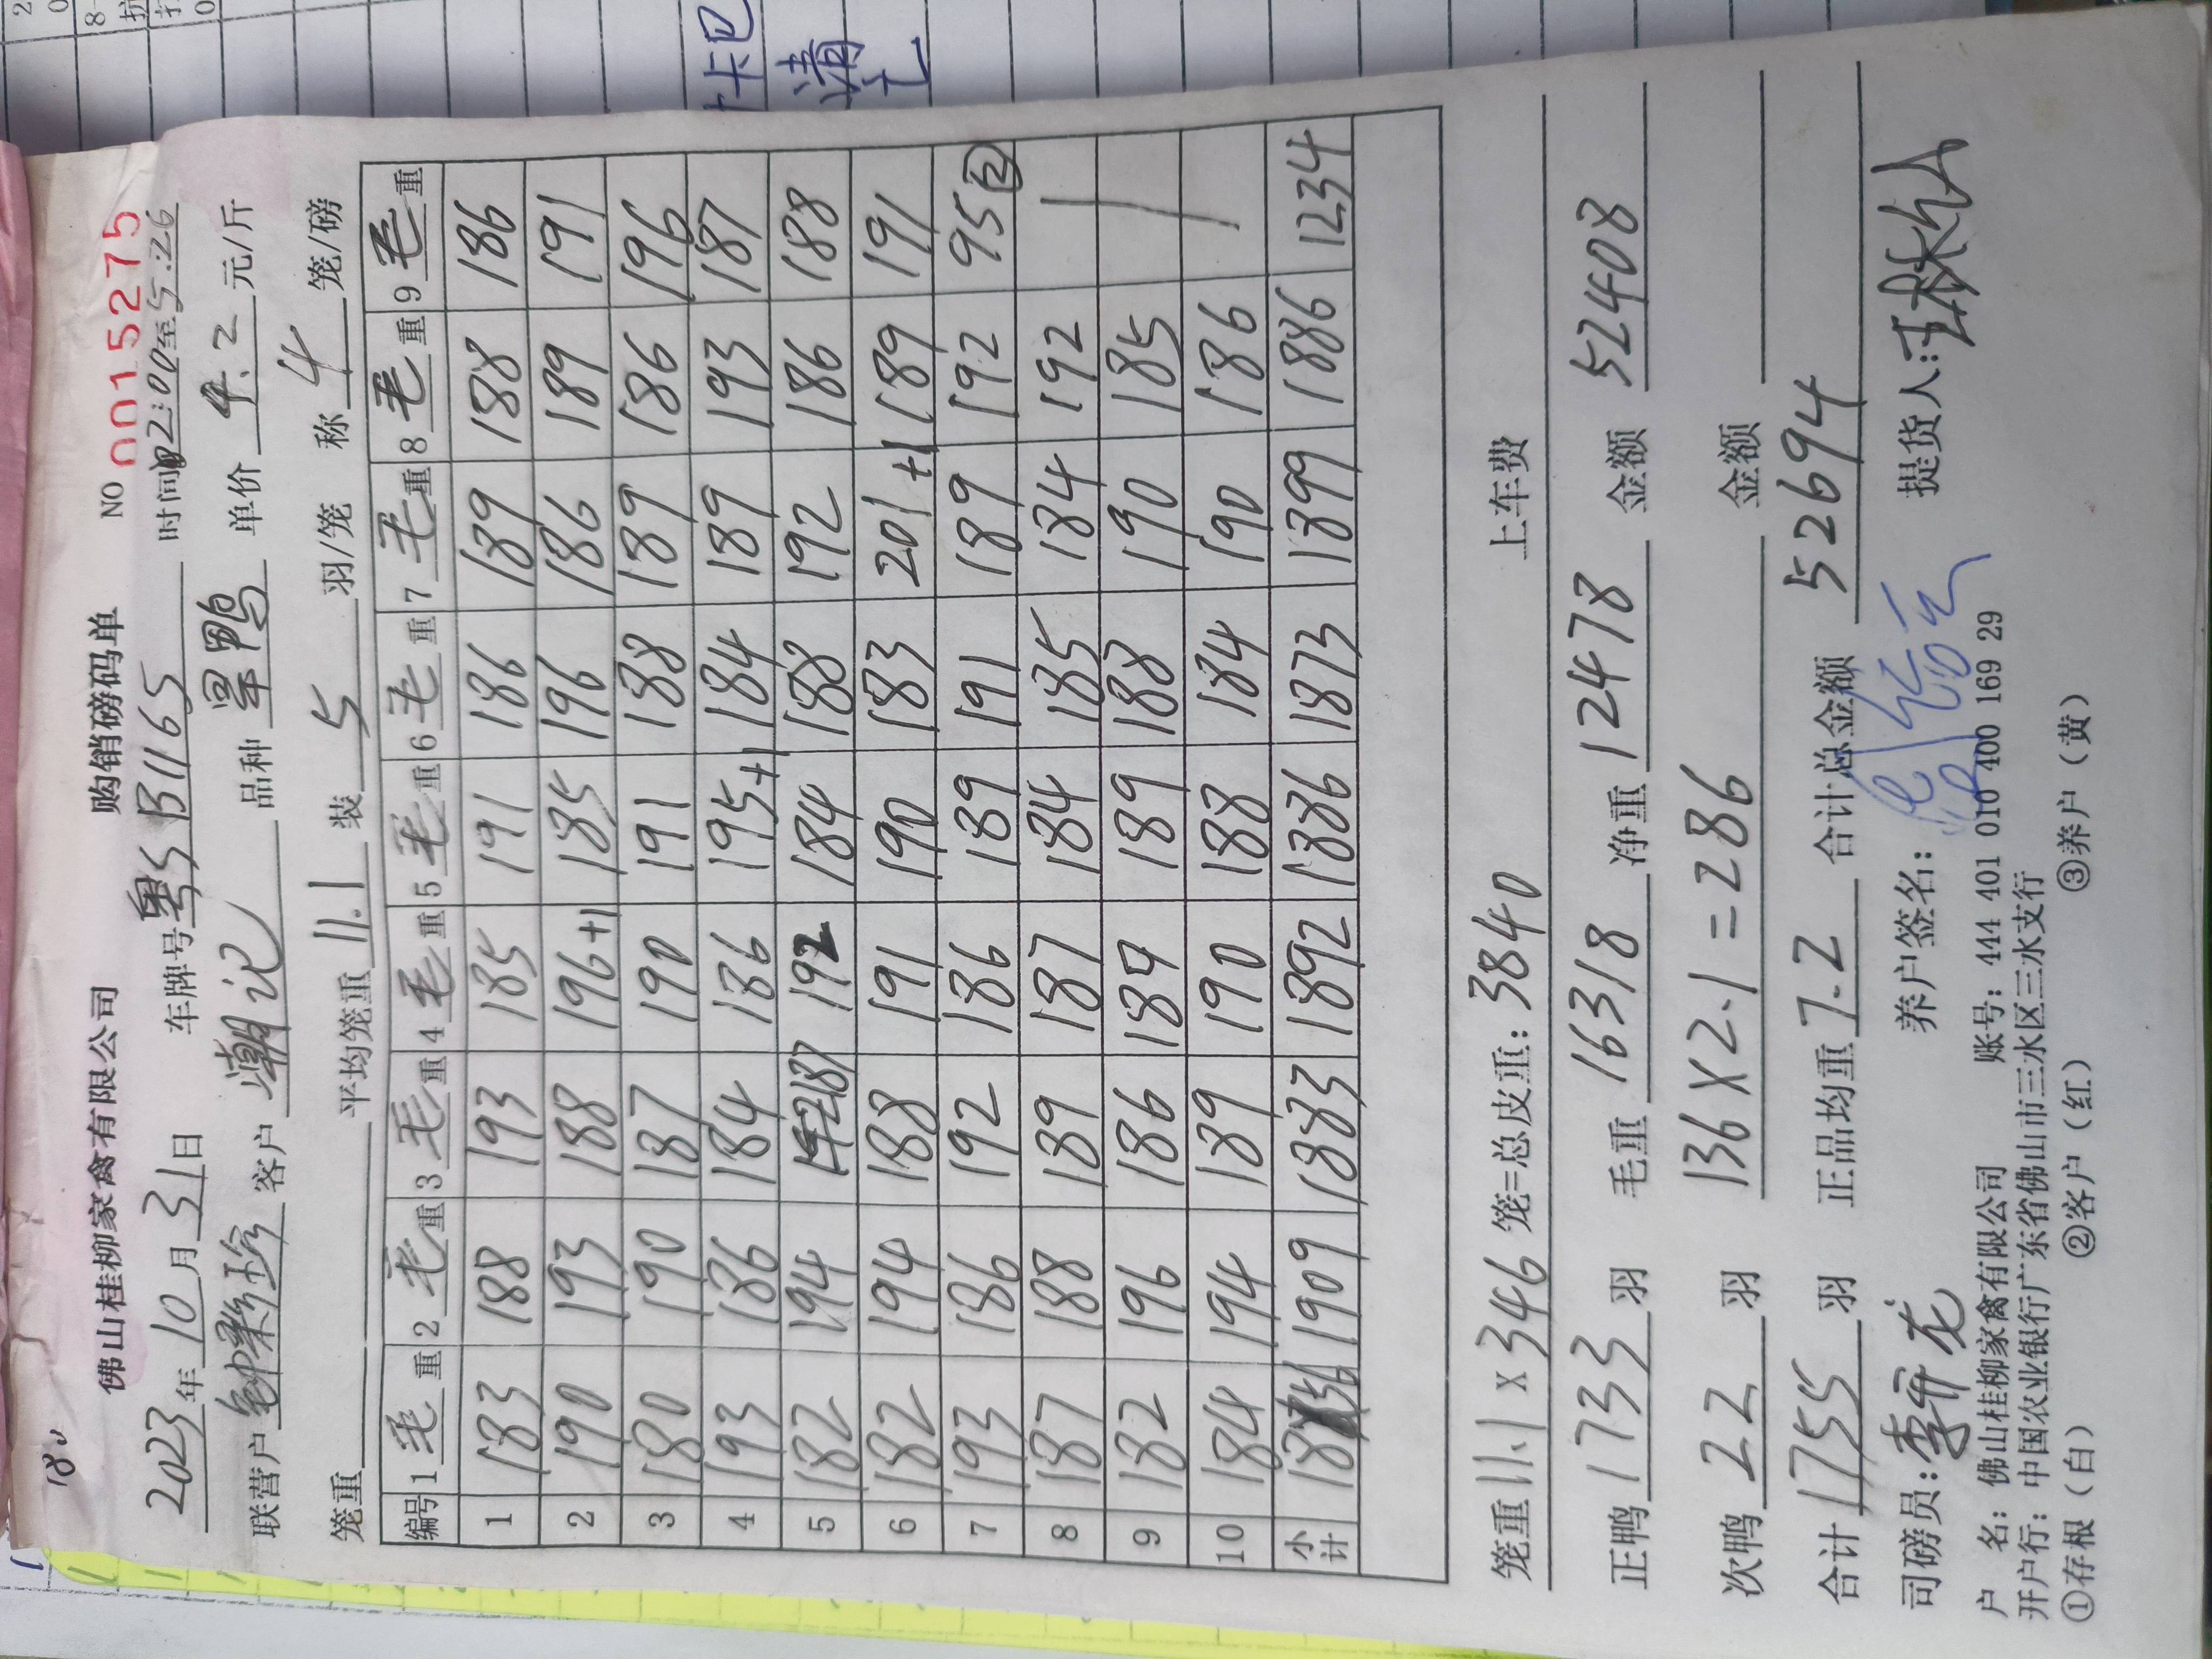 180
佛山桂柳家禽有限公司 购销磅码单 NO 0015275
2023年10月31日 车牌号粤S B1165 时间02:00至5:26
联营户 客户 潮记 品种 单价 4.2 元/斤
笼重 平均笼重 11.1 装 5 羽/笼 称 4 笼/磅
编号 1 毛重 2 毛重 3 毛重 4 毛重 5 毛重 6 毛重 7 毛重 8 毛重 9 毛重
1 183 188 193 185 191 186 189 188 186
2 190 193 188 196+1 185 196 186 189 191
3 180 190 187 190 191 188 189 186 196
4 193 186 184 186 195+1 184 189 193 187
5 182 194 187 192 184 188 192 186 188
6 182 194 188 191 190 183 201+1 189 191
7 193 186 192 186 189 191 189 192 95②
8 187 188 189 187 184 185 184 192
9 182 196 186 189 189 188 190 185
10 184 194 189 190 188 184 190 186
小计 1856 1909 1883 1892 1886 1873 1899 1886 1234
笼重 11.1 x 346 笼=总皮重: 3840 上车费
正鸭 1733 羽 毛重 16318 净重 12478 金额 52408
次鸭 22 羽 136 x 2.1 = 286 金额
合计 1755 羽 正品均重 7.2 合计总金额 52694
司磅员: 李开龙 养户签名: 提货人:
户 名: 佛山桂柳家禽有限公司 账号: 444 401 010 400 169 29
开户行: 中国农业银行广东省佛山市三水区三水支行
①存根（白） ②客户（红） ③养户（黄）